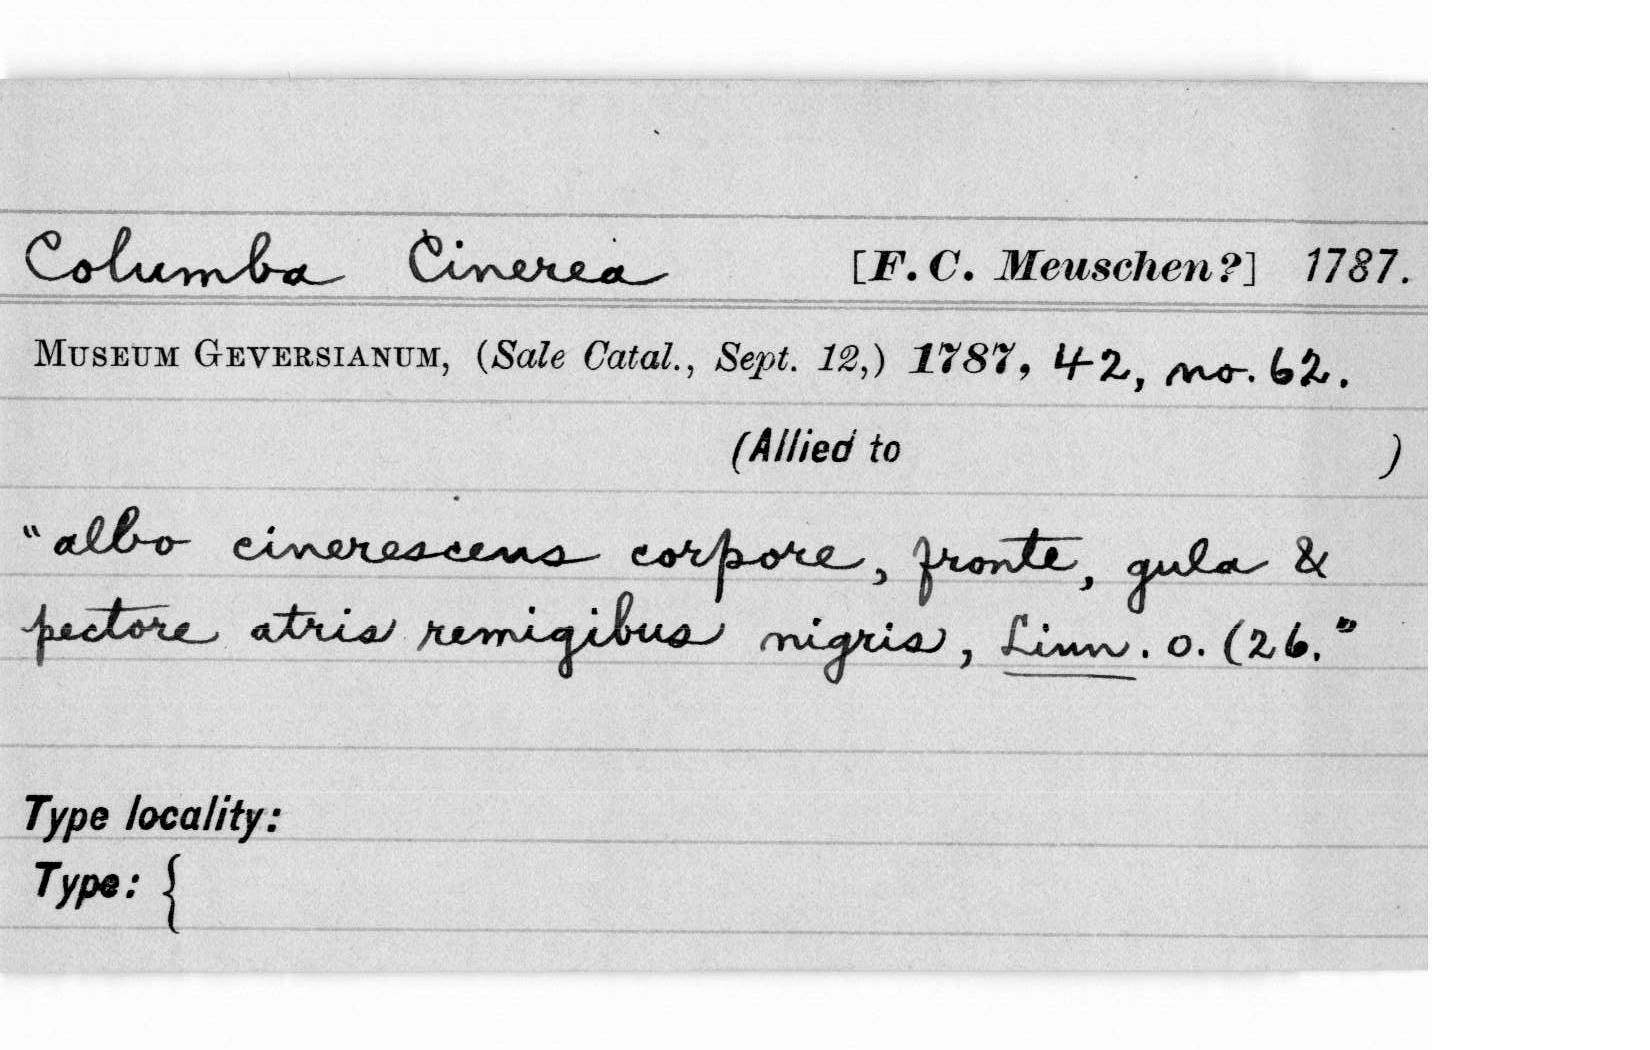 Columba Cinerea [F. C. Meuschen?] 1787.
MUSEUM GEVERSIANUM, (Sale Catal., Sept. 12,) 1787, 42, no. 62.
(Allied to )
"albo cinerescens corpore, fronte, gula &
pectore atris remigibus nigris, Linn. o. (26."
Type locality:
Type: {